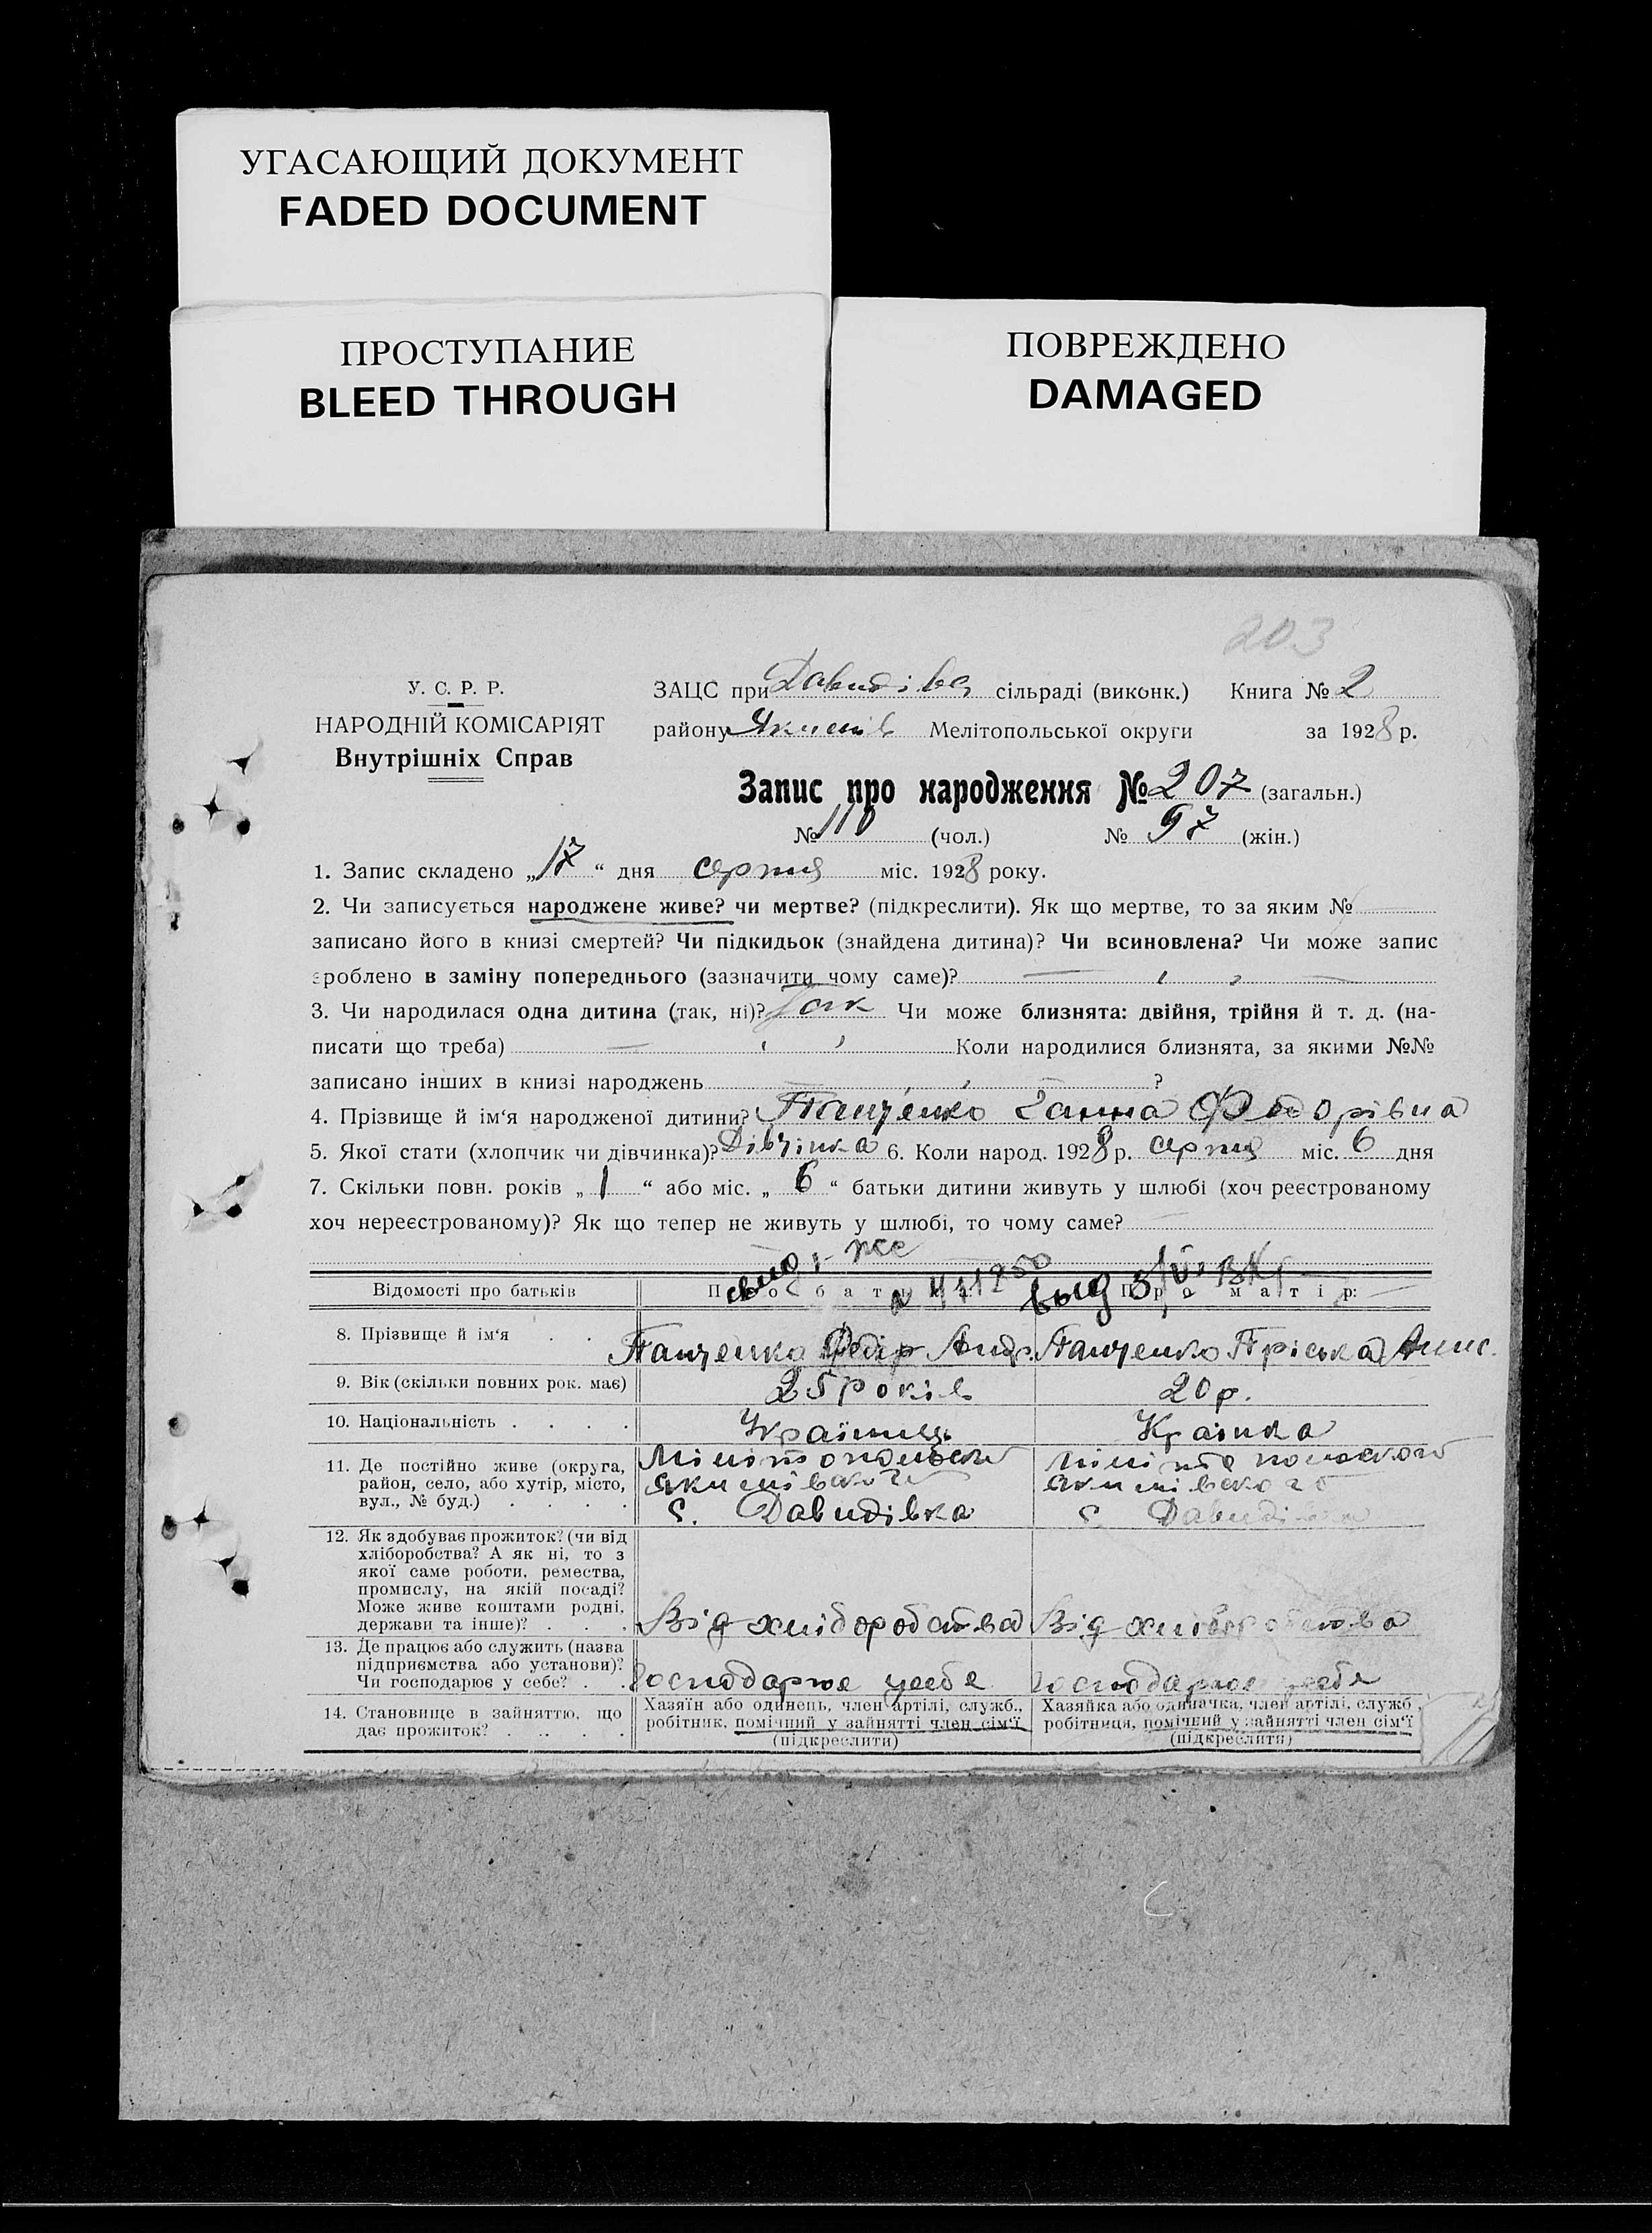 УГАСАЮЩИЙ ДОКУМЕНТ
FADED DOCUMENT
ПРОСТУПАНИЕ
BLEED THROUGH
ПОВРЕЖДЕНО
DAMAGED
203
У. С. Р. Р.
НАРОДНІЙ КОМІСАРІЯТ
Внутрішніх Справ
ЗАЦС при Давидівс сільраді (виконк.) Книга № 2
району Якимів Мелітопольської округи за 1928 р.
Запис про народження № 207 (загальн.)
№ 110 (чол.) № 97 (жін.)
1. Запис складено „17“ дня серпня міс. 1928 року.
2. Чи записується народжене живе? чи мертве? (підкреслити). Як що мертве, то за яким №
записано його в книзі смертей? Чи підкидьок (знайдена дитина)? Чи всиновлена? Чи може запис
зроблено в заміну попереднього (зазначити чому саме)?
3. Чи народилася одна дитина (так, ні)? Так Чи може близнята: двійня, трійня й т. д. (на-
писати що треба) Коли народилися близнята, за якими №№
записано інших в книзі народжень ?
4. Прізвище й ім‘я народженої дитини? Панченко Ганна Федорівна
5. Якої стати (хлопчик чи дівчинка)? Дівчинка 6. Коли народ. 1928 р. серпня міс. 6 дня
7. Скільки повн. років „1“ або міс. „6“ батьки дитини живуть у шлюбі (хоч реєстрованому
хоч нереєстрованому)? Як що тепер не живуть у шлюбі, то чому саме?
Відомості про батьків Про батька: Про матір:
8. Прізвище й ім‘я Панченко Федір Андр. Панченко Пріська Анис.
9. Вік (скільки повних рок. має) 25 років 20 р.
10. Національність Українець Країнка
11. Де постійно живе (округа,
район, село, або хутір, місто,
вул., № буд.)
Якимівского
с. Давидівка
Якимівского
с. Давидівка
12. Як здобуває прожиток? (чи від
хліборобства? А як ні, то з
якої саме роботи, ремества,
промислу, на якій посаді?
Може живе коштами родні,
держави та інше)? Від хліборобства Від хліборобства
13. Де працює або служить (назва
підприємства або установи)?
Чи господарює у себе? Господарює усебе Господарює усебе
14. Становище в зайняттю, що
дає прожиток?
Хазяїн або одинець, член артілі, служб.,
робітник, помічний у зайнятті член сім‘ї
(підкреслити)
Хазяйка або одиначка, член артілі, служб.,
робітниця, помічний у зайнятті член сім‘ї
(підкреслити)